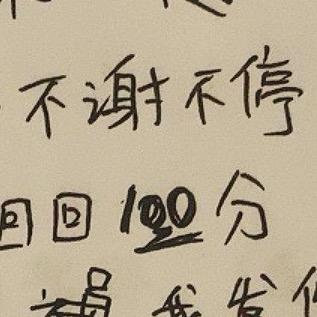 不谢不停
回回100分
我发